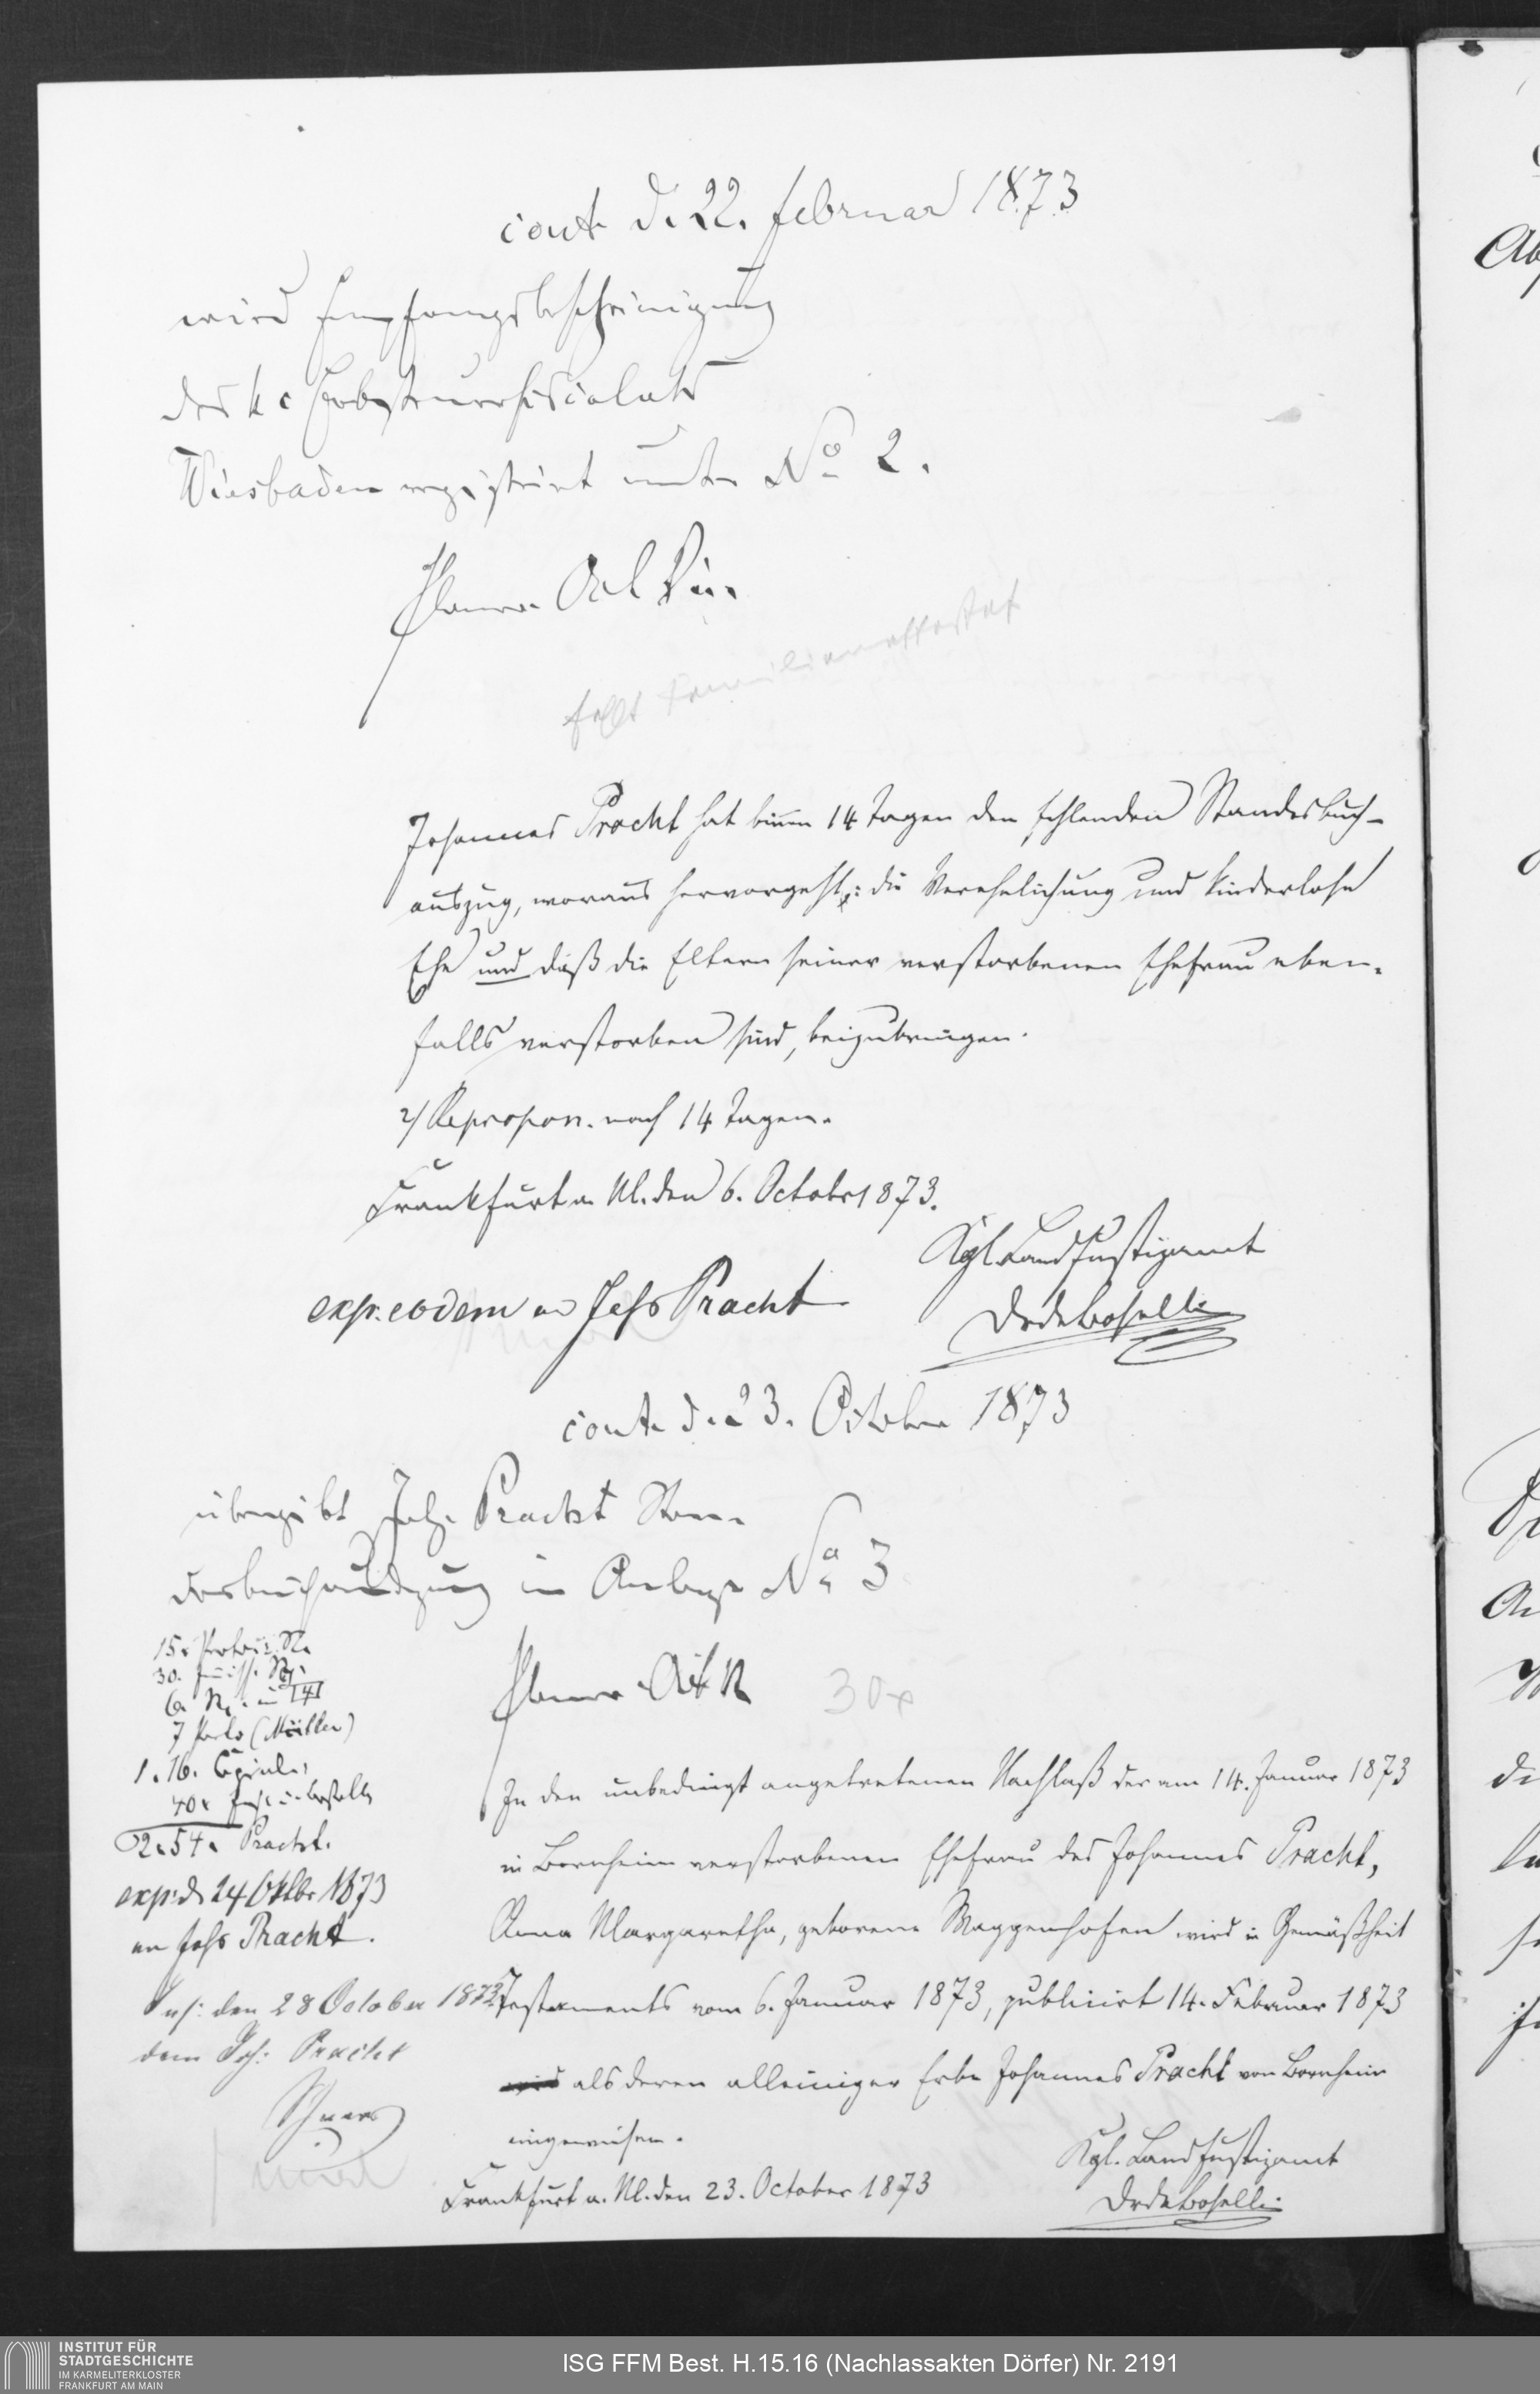 cont. d. 22. Februar 1873
wird Empfangsbescheinigung
des k c Erbsteuerfiscalats
Wiesbaden registrirt unter No 2.
fehlt Familienattestat
Johannes Pracht hat binnen 14 Tagen den fehlenden Standesbuch-
auszug, woraus hervorgeht: die Verehelichung und kinderlose
Ehe und daß die Eltern seiner verstorbenen Ehefrau eben-
falls verstorben sind, beizubringen.
2/ Repropon. nach 14 Tagen.
Frankfurt a. M. den 6. Octobr 1873.
Kgl. Land Justizamt
expr. eodem an Johs Pracht
cont. d. 23. October 1873
übergibt Joh. Pracht Stan-
desbuchauszug in Anlage No 3
30x
15x
30.
6.
7 Porto (Müller)
1. 16.
40x
2. 54. Pracht.
exp: d. 24 Oktbr 1873
an Johs Pracht.
Ins: den 28 October 1873
dem Joh: Pracht
In den unbedingt angetretenen Nachlaß der am 14. Januar 1873
in Bornheim verstorbenen Ehefrau des Johannes Pracht,
Anna Margaretha, geborene Waggenhofen wird in Gemäßheit
Testaments vom 6. Januar 1873, publicirt 14. Februar 1873
wird als deren alleiniger Erbe Johannes Pracht von Bornheim
eingewiesen.
Frankfurt a. M. den 23. October 1873
Kgl. Land Justizamt
INSTITUT FÜR
STADTGESCHICHTE
IM KARMELITERKLOSTER
FRANKFURT AM MAIN
ISG FFM Best. H.15.16 (Nachlassakten Dörfer) Nr. 2191